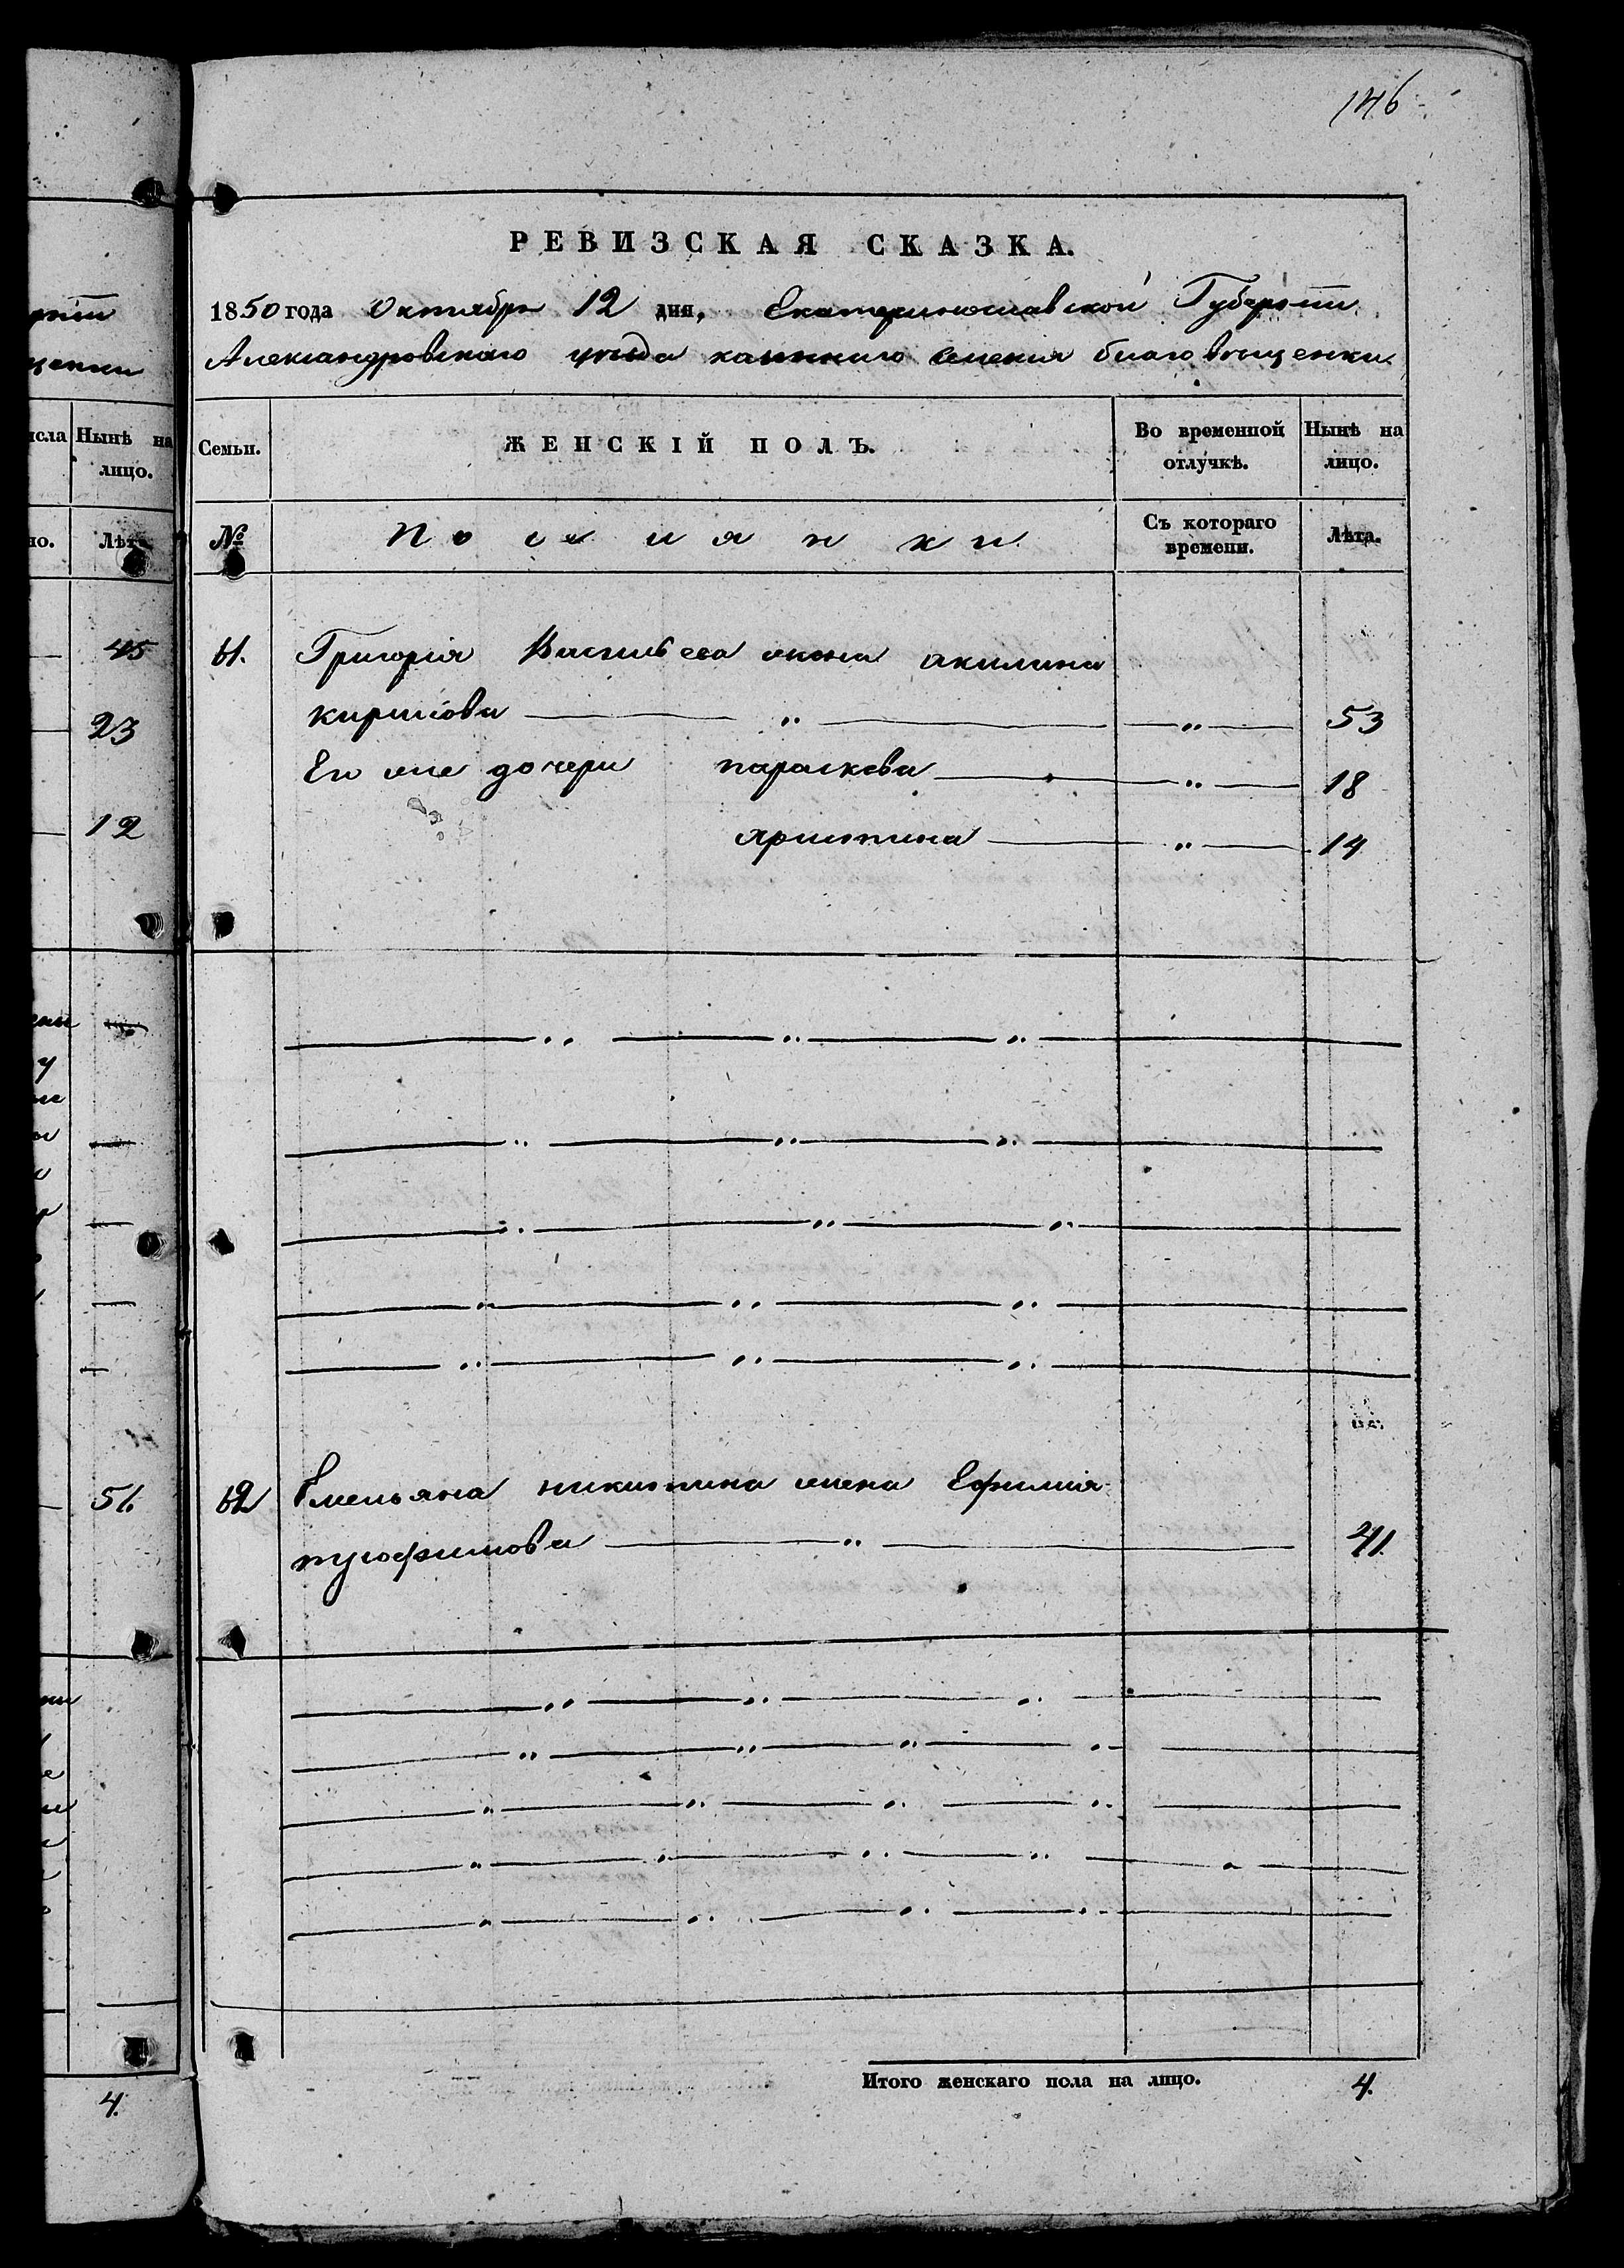 146
РЕВИЗСКАЯ СКАЗКА.
1850 года Октября 12 дня, Екатеринославской Губернии
Александровского уезда казенного селения благовещенки
Семьи.
ЖЕНСКІЙ ПОЛЪ.
Во временной отлучкѣ.
Нынѣ на лицо.
№
Поселянки
Съ котораго времени.
Лѣта.
61. Григорія Васильева жена акилина
кирилова — „ — „ — 53
Его же дочери параскева — „ — 18
христина — „ — 14
62 Емельяна никитина жена Ефимия
трофимова — „ — 41.
Итого женскаго пола на лицо. 4.
Нынѣ на лицо.
45
23
12
51.
4.